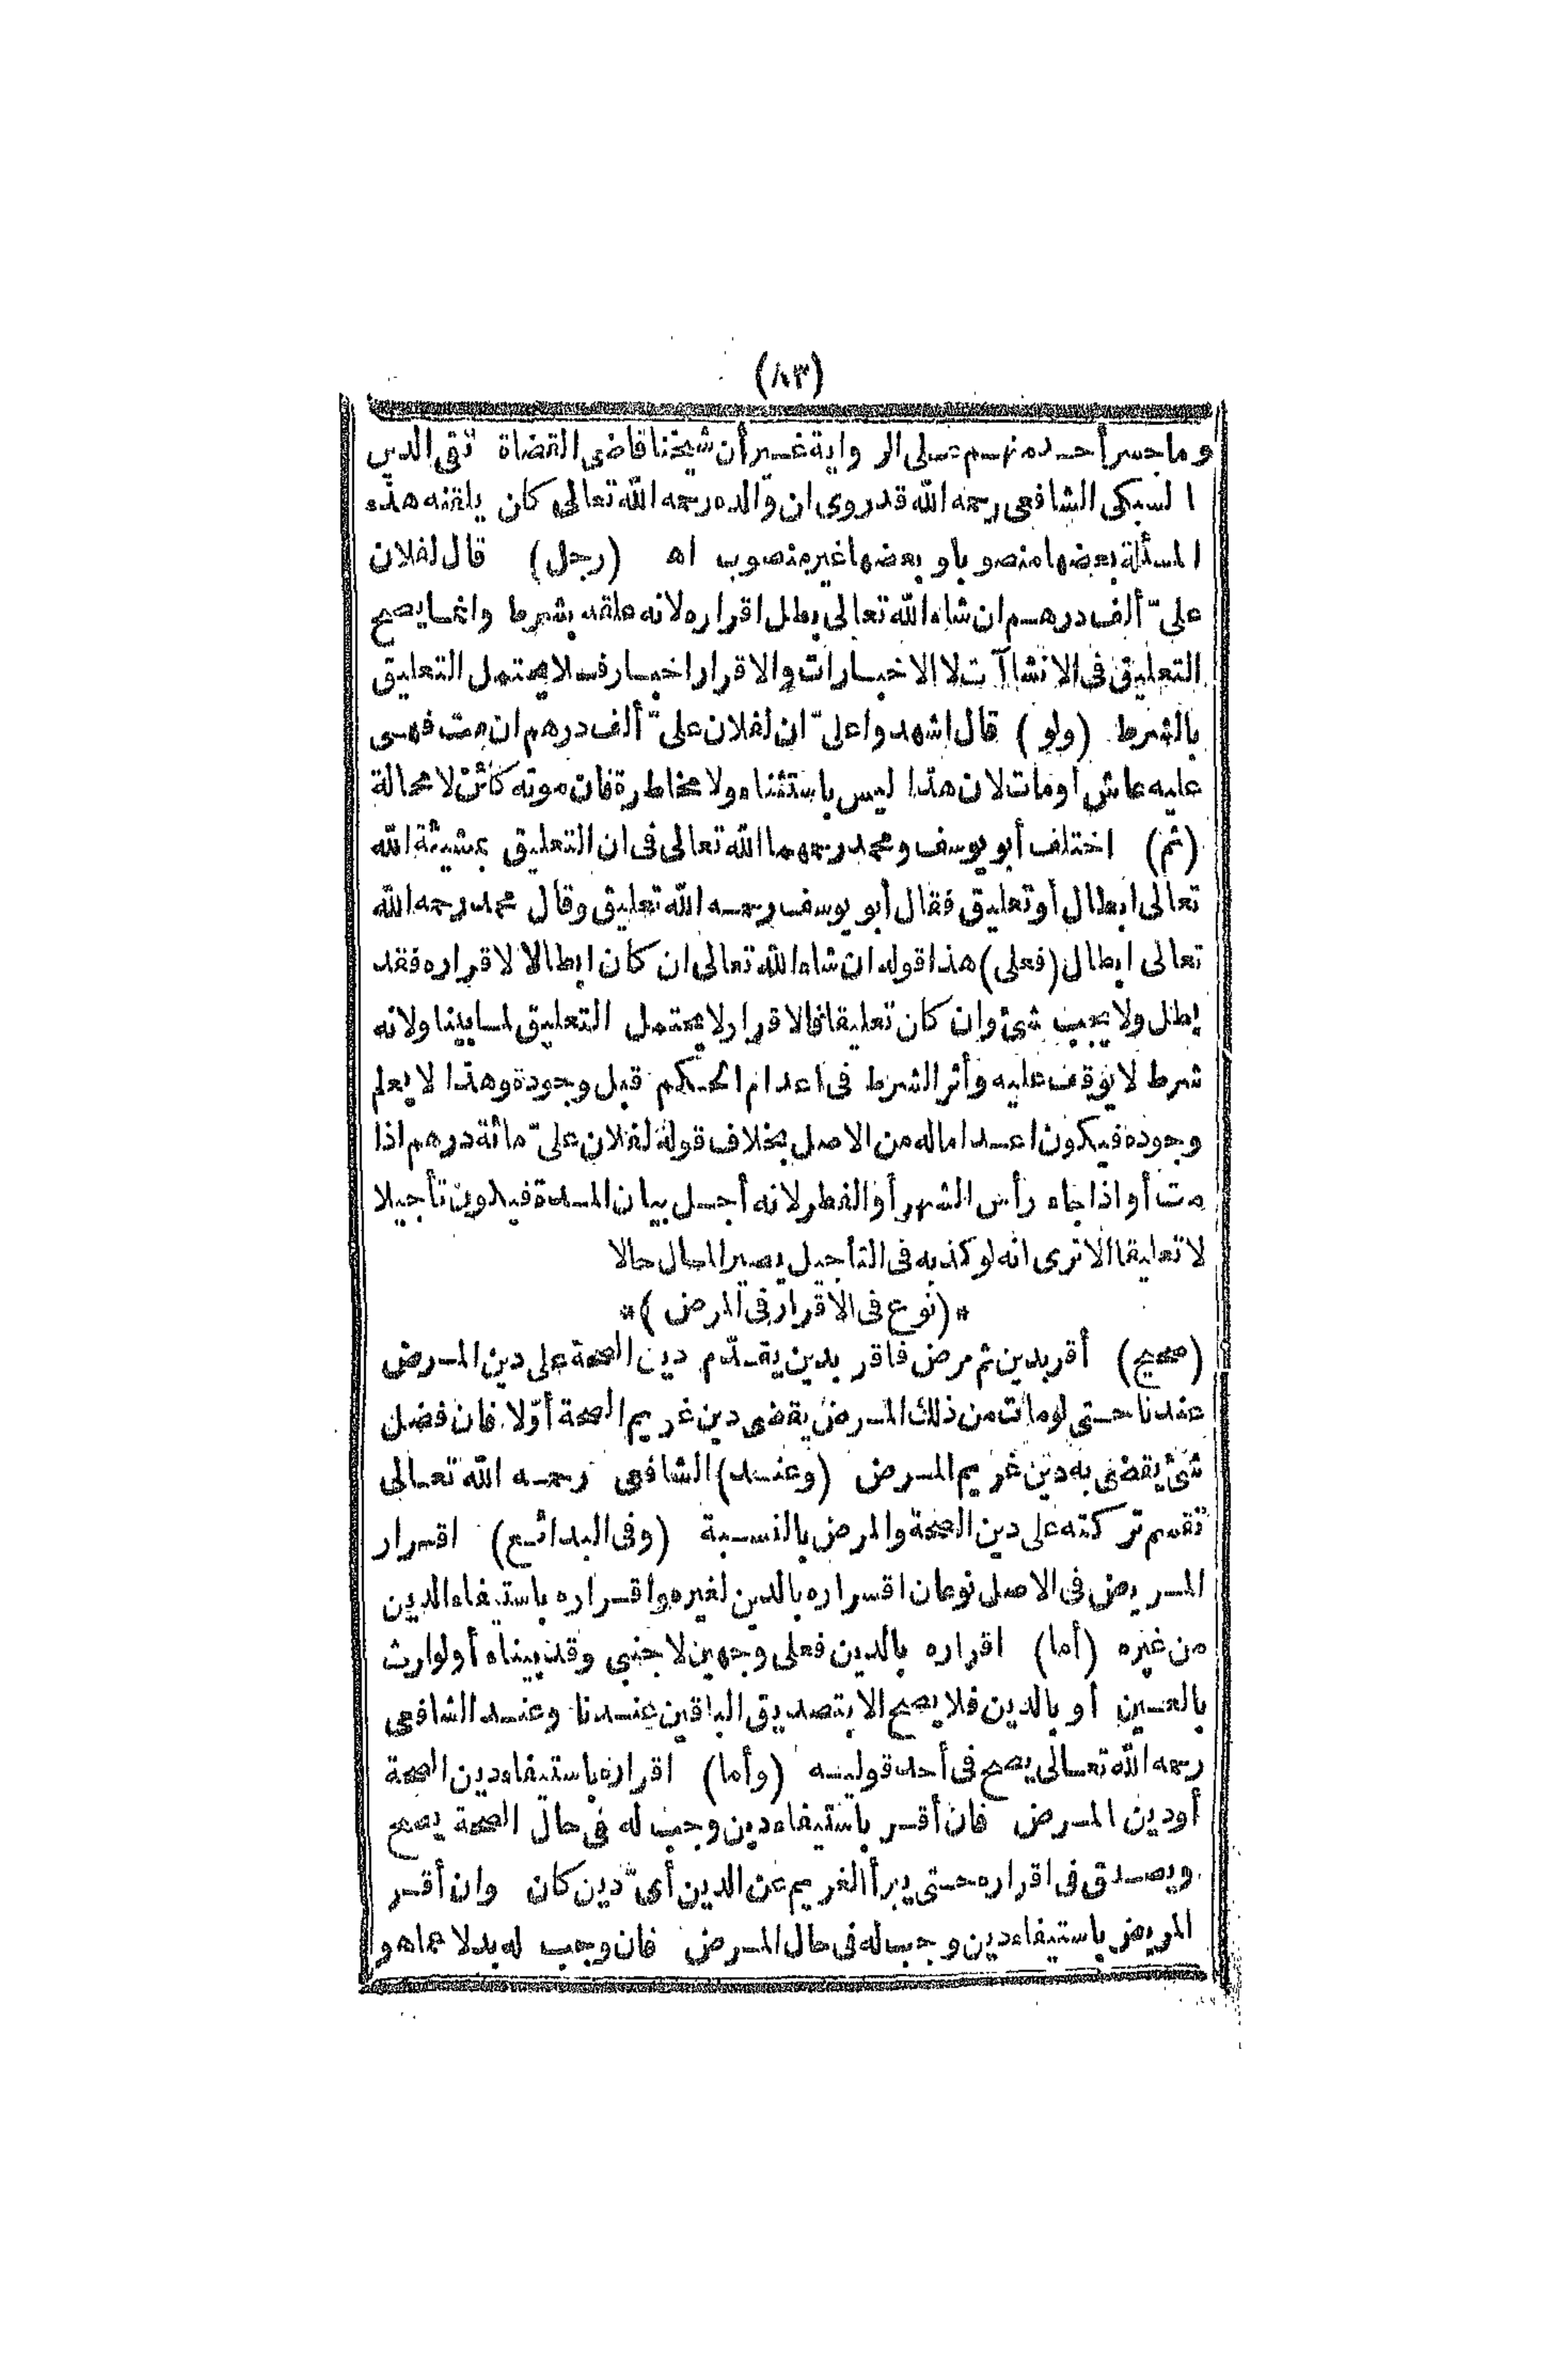 (٨٣)
وما جسر أحد منهم على الرواية غير أن شيخنا قاضى القضاة تقى الدين
السبكى الشافعى رحمه الله قد روى ان والده رحمه الله تعالى كان يلقنه هذه
المسئلة بعضها منصوبا و بعضها غير منصوب اه (رجل) قال لفلان
علىّ ألف درهم ان شاء الله تعالى بطل اقراره لانه علقه بشرط وانما يصح
التعليق فى الانشاآت لا الاخبارات والاقرار اخبار فلا يحتمل التعليق
بالشرط (ولو) قال اشهدوا علىّ ان لفلان علىّ ألف درهم ان مت فهى
عليه عاش أو مات لان هذا ليس باستثناء ولا مخاطرة فان موته كائن لا محالة
(ثم) اختلف أبو يوسف ومحمد رحمهما الله تعالى فى ان التعليق بمشيئة الله
تعالى ابطال أو تعليق فقال أبو يوسف رحمه الله تعليق وقال محمد رحمه الله
تعالى ابطال (فعلى) هذا قوله ان شاء الله تعالى ان كان ابطالا لاقراره فقد
بطل ولا يجب شئ وان كان تعليقا فالاقرار لا يحتمل التعليق لما بينا ولانه
شرط لا يوقف عليه وأثر الشرط فى اعدام الحكم قبل وجوده وهذا لا يعلم
وجوده فيكون اعداما له من الاصل بخلاف قوله لفلان علىّ مائة درهم اذا
مت أو اذا جاء رأس الشهر أو الفطر لانه أجل بيان المدة فيكون تأجيلا
لا تعليقا ألا ترى انه لو كذبه فى التأجيل يصير المال حالا
*(نوع فى الاقرار فى المرض)*
(صحيح) أقر بدين ثم مرض فاقر بدين يقدّم دين الصحة على دين المرض
عندنا حتى لو مات من ذلك المرض يقضى دين غريم الصحة أوّلا فان فضل
شئ يقضى به دين غريم المرض (وعند) الشافعى رحمه الله تعالى
تقسم تركته على دين الصحة والمرض بالنسبة (وفى البدائع) اقرار
المريض فى الاصل نوعان اقراره بالدين لغيره واقراره باستيفاء الدين
من غيره (أما) اقراره بالدين فعلى وجهين لاجنبى وقد بيناه أو لوارث
بالعين أو بالدين فلا يصح الا بتصديق الباقين عندنا وعند الشافعى
رحمه الله تعالى يصح فى أحد قوليه (وأما) اقراره باستيفاء دين الصحة
أو دين المرض فان أقر باستيفاء دين وجب له فى حال الصحة يصح
ويصدق فى اقراره حتى يبرأ الغريم عن الدين أىّ دين كان وان أقر
المريض باستيفاء دين وجب له فى حال المرض فان وجب له بدلا عما هو